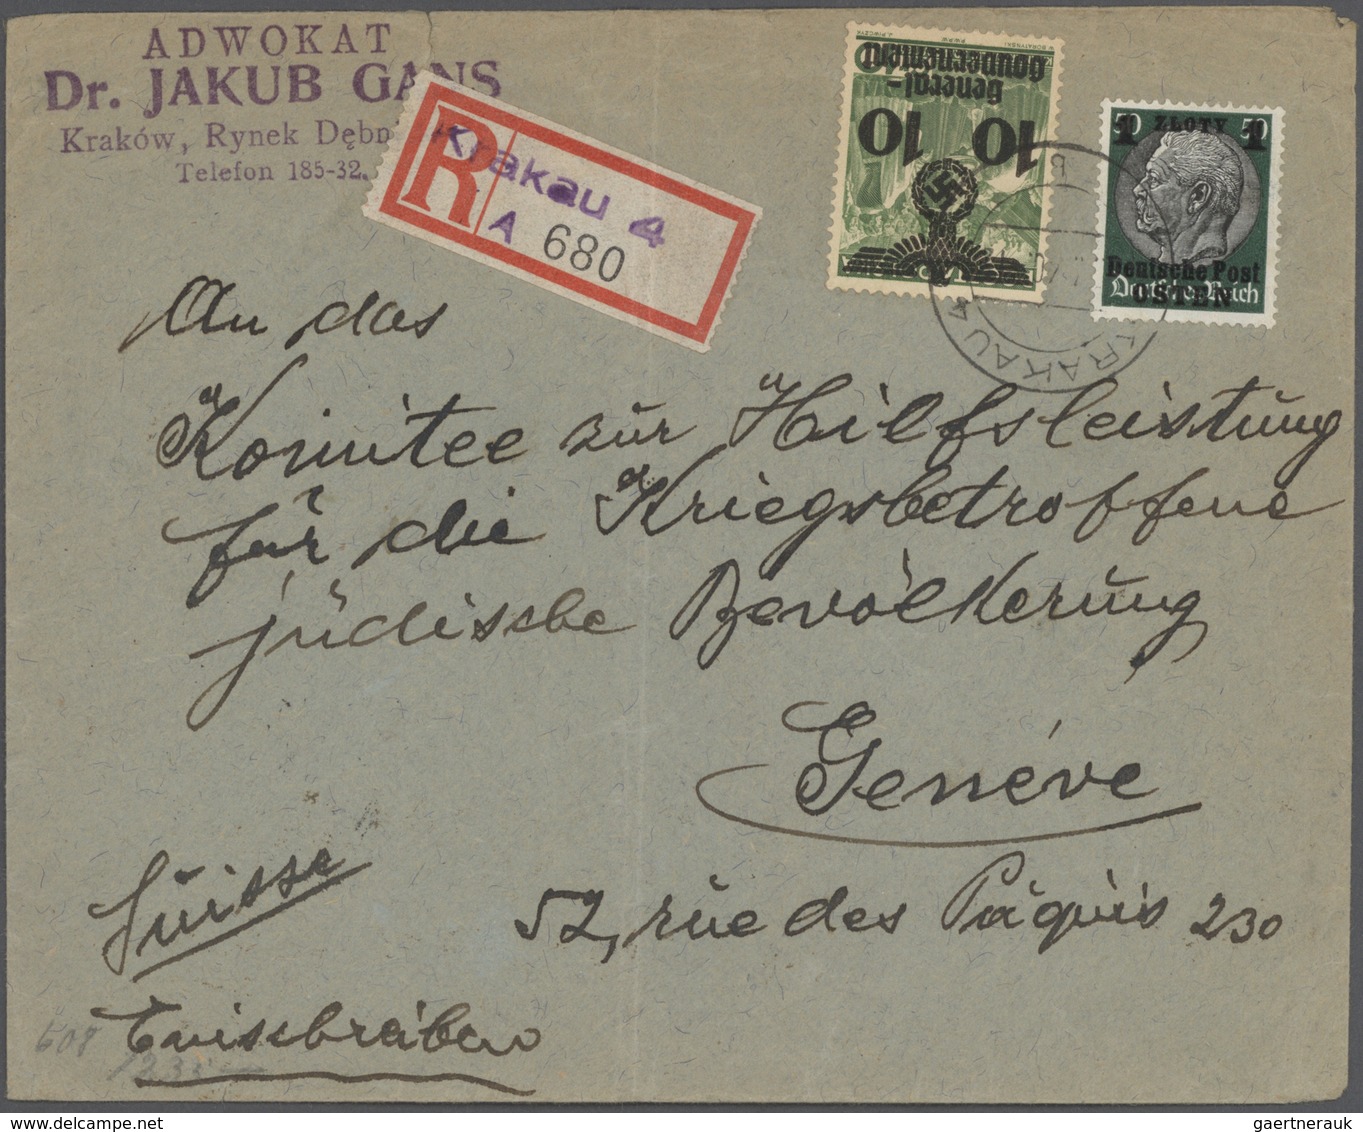 ADWOKAT
Dr. JAKUB GANS
Kraków, Rynek Dębn
Telefon 185-32.
R
Krakau 4
A 680
W. BORATYŃSKI
J. PIWCZYK
General-
Gouvernement
10 10 10
50 50
1 ZŁOTY 1
Deutsche Post
OSTEN
Deutsches Reich
KRAKAU 4
An das
Komitee zur Hilfsleistung
für die Kriegsbetroffene
jüdische Bevölkerung
Genéve
Suisse
52, rue des Pâquis 230
Einschreiben
608
1233
gaertnerauk